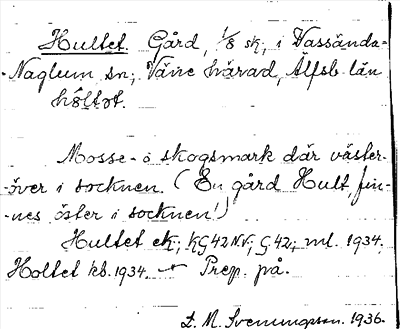 Hultet. Gård, 1/8 sk., i Vassända-
-Naglum sn; Väne härad, Älfsb. län
hôltət.
Mosse- o skogsmark där väster-
-över i socknen. (En gård Hult, fin-
-nes öster i socknen!)
Hultet ek; KG 42 NV; G. 42; ml. 1934.
Holtet kb. 1934. Prep. på.
L. M. Svenungson. 1936.